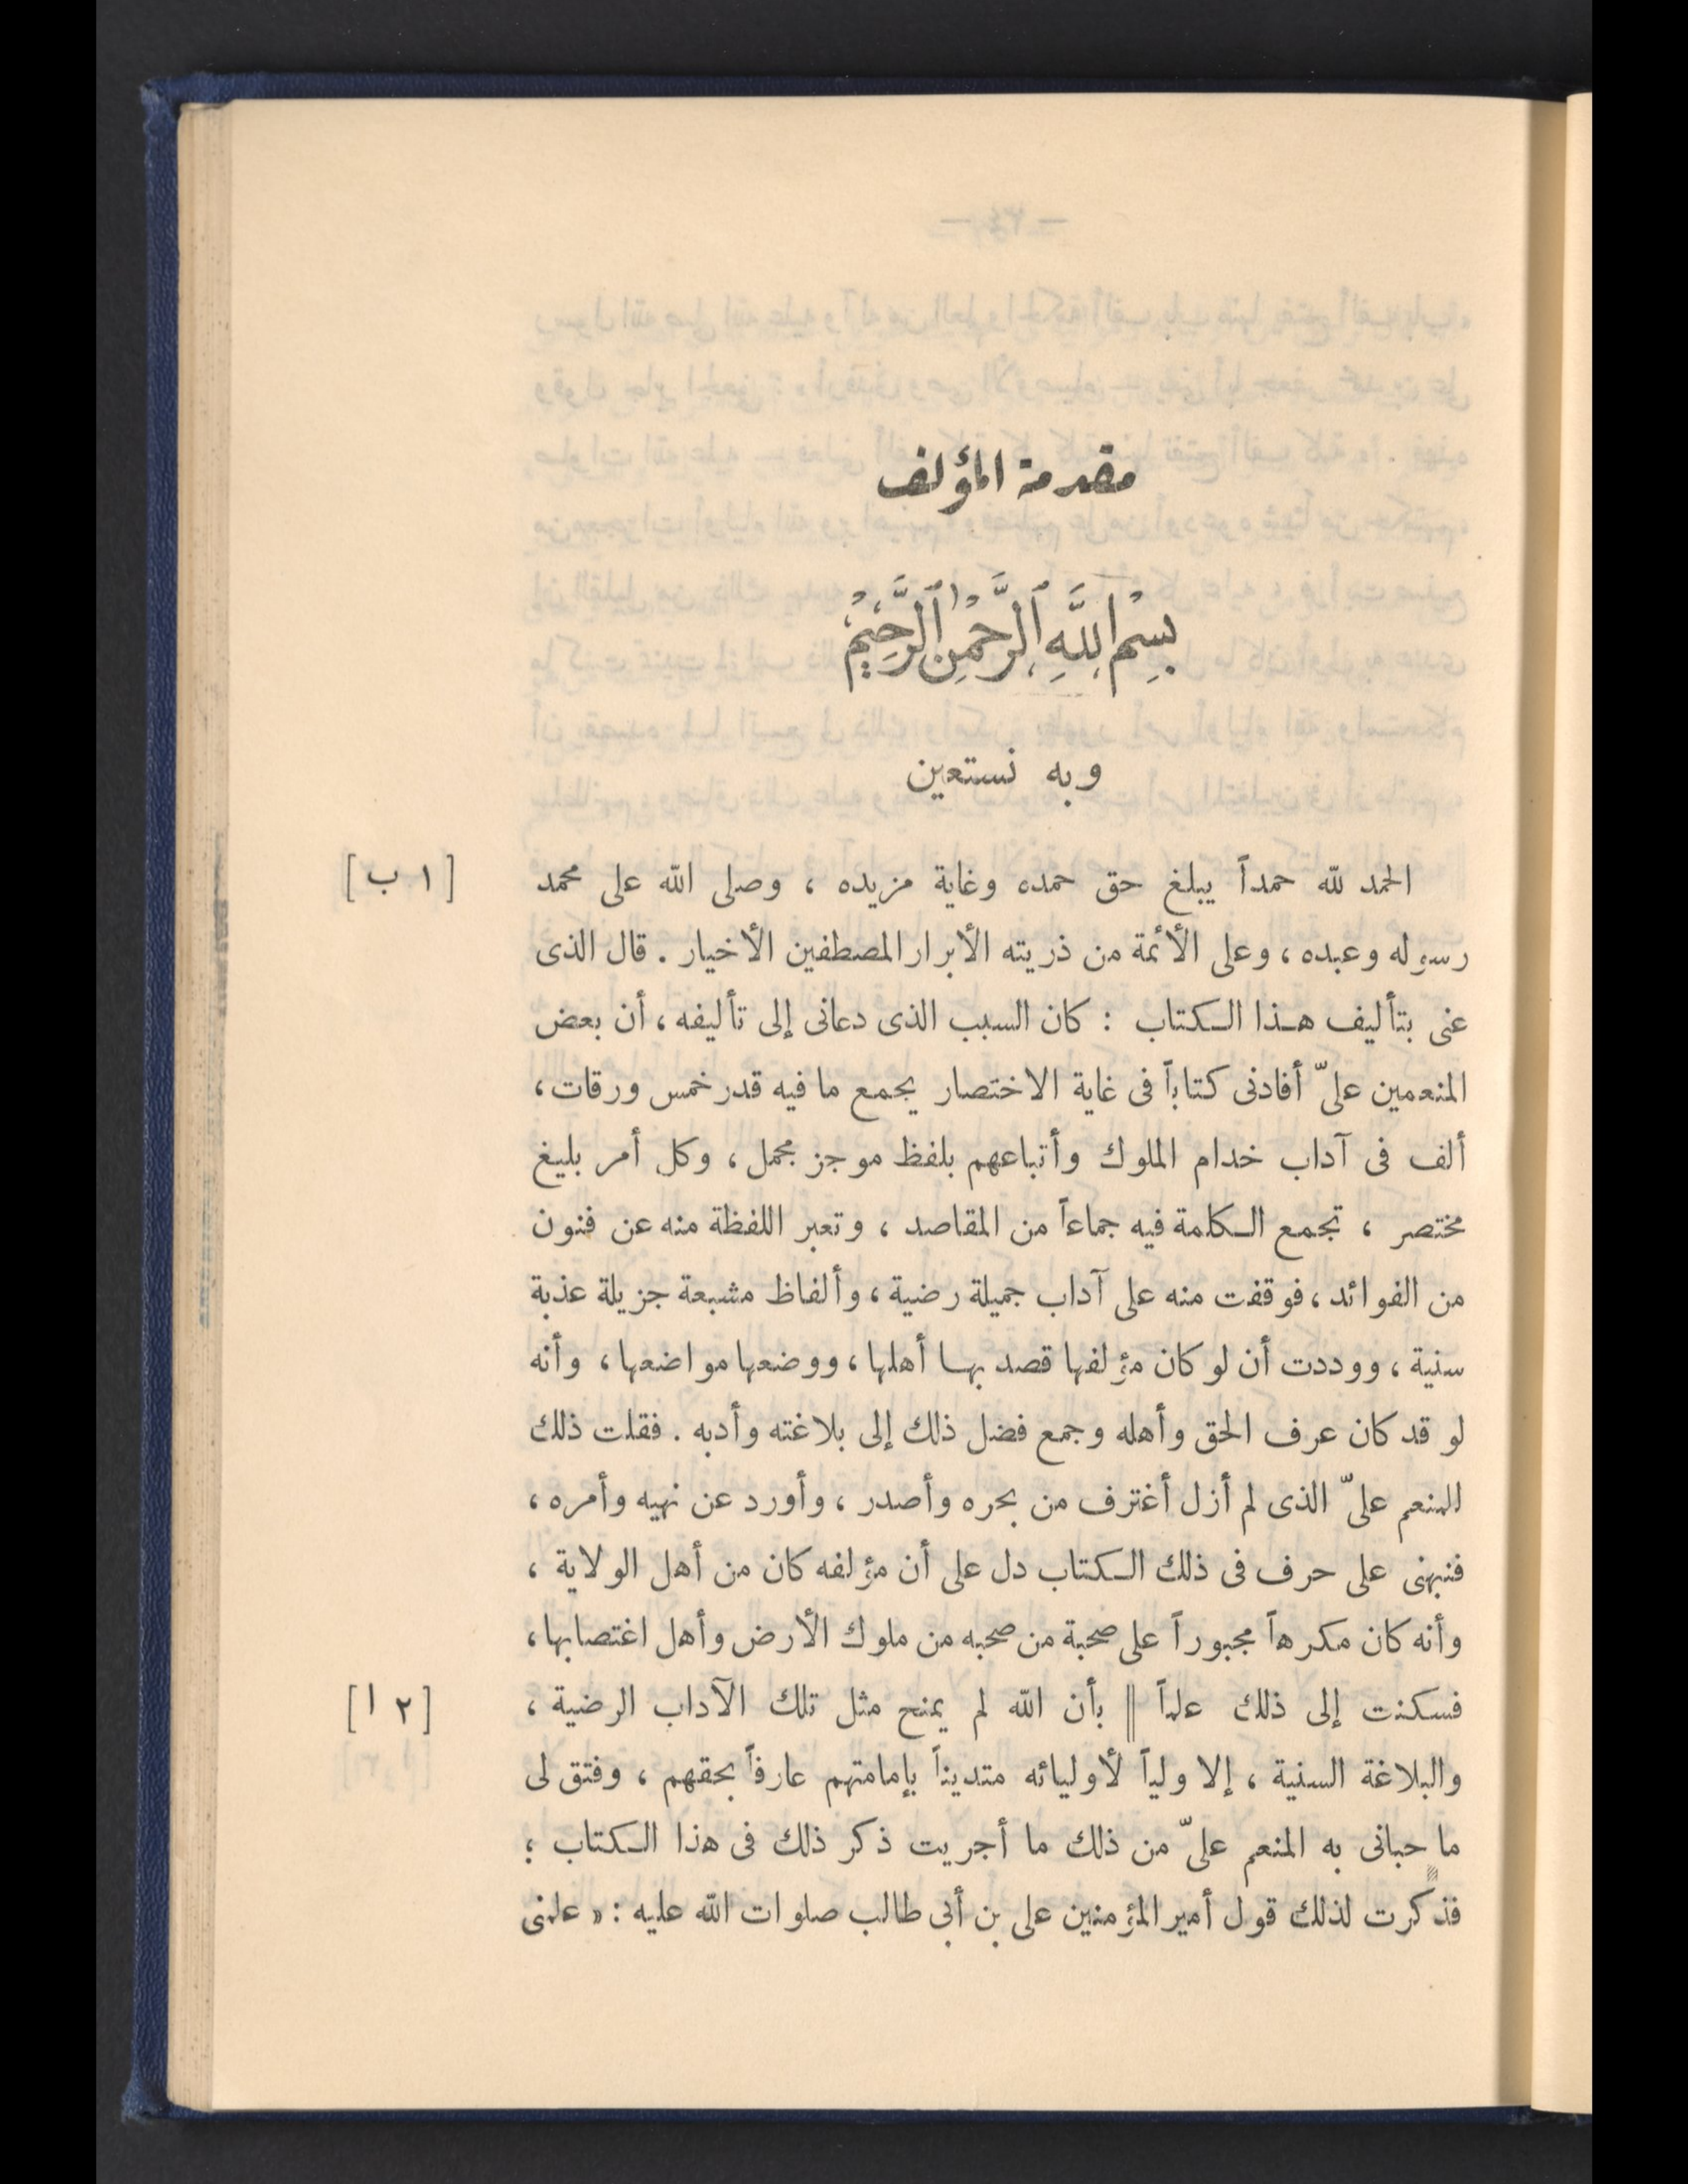 مقدمة المؤلف
بِسْمِ اللَّهِ الرَّحْمٰنِ الرَّحِيمِ
وبه نستعين
الحمد لله حمداً يبلغ حق حمده وغاية مزيده ، وصلى الله على محمد [١ ب]
رسوله وعبده ، وعلى الأئمة من ذريته الأبرار المصطفين الأخيار . قال الذى
عنى بتأليف هذا الكتاب : كان السبب الذى دعانى إلى تأليفه ، أن بعض
المنعمين علىّ أفادنى كتاباً فى غاية الاختصار يجمع ما فيه قدر خمس ورقات ،
ألف فى آداب خدام الملوك وأتباعهم بلفظ موجز مجمل ، وكل أمر بليغ
مختصر ، تجمع الكلمة فيه جماعاً من المقاصد ، وتعبر اللفظة منه عن فنون
من الفوائد ، فوقفت منه على آداب جميلة رضية ، وألفاظ مشبعة جزيلة عذبة
سنية ، ووددت أن لو كان مؤلفها قصد بها أهلها ، ووضعها مواضعها ، وأنه
لو قد كان عرف الحق وأهله وجمع فضل ذلك إلى بلاغته وأدبه . فقلت ذلك
للمنعم علىّ الذى لم أزل أغترف من بحره وأصدر ، وأورد عن نهيه وأمره ،
فنبهنى على حرف فى ذلك الكتاب دل على أن مؤلفه كان من أهل الولاية ،
وأنه كان مكرهاً مجبوراً على صحبة من صحبه من ملوك الأرض وأهل اغتصابها ،
فسكنت إلى ذلك علماً || بأن الله لم يمنح مثل تلك الآداب الرضية ، [٢ ا]
والبلاغة السنية ، إلا ولياً لأوليائه متديناً بإمامتهم عارفاً بحقهم ، وفتق لى
ما حبانى به المنعم علىّ من ذلك ما أجريت ذكر ذلك فى هذا الكتاب ؛
فذكرت لذلك قول أمير المؤمنين على بن أبى طالب صلوات الله عليه : « علمنى